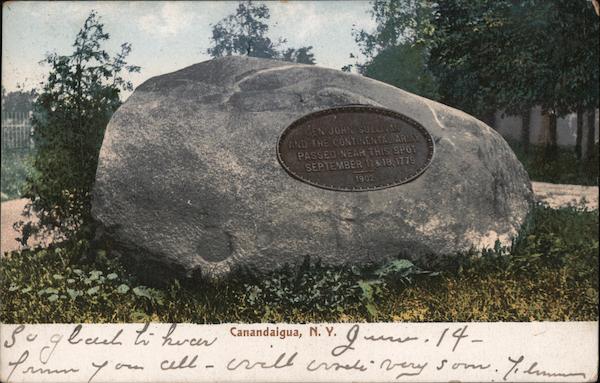 GEN JOHN SULLIVAN
AND THE CONTINENTAL ARMY
PASSED NEAR THIS SPOT
SEPTEMBER 11 & 18, 1779
1902
Canandaigua, N. Y.
So glad to hear June. 14-
from you all - will write very soon.